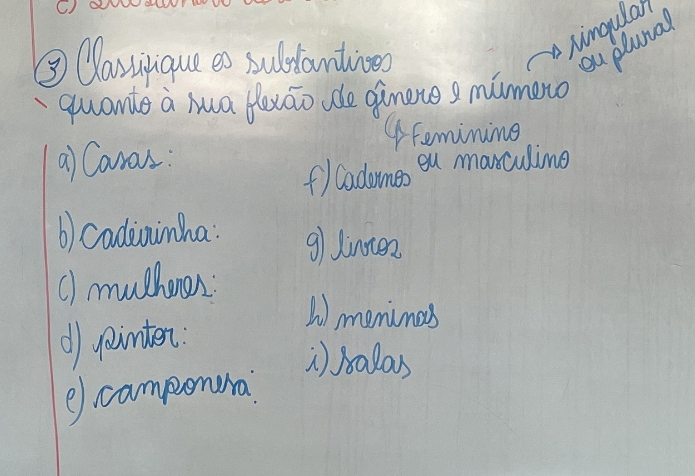 ③ Classifique os substantivos
quanto à sua flexão de gênero e número
→ singular
ou plural
↳ Feminino
ou masculino
a) Casas:
b) cadeirinha:
c) mulheres:
d) pintor:
e) camponesa:
f) Cadernos
g) livros
h) meninas
i) salas